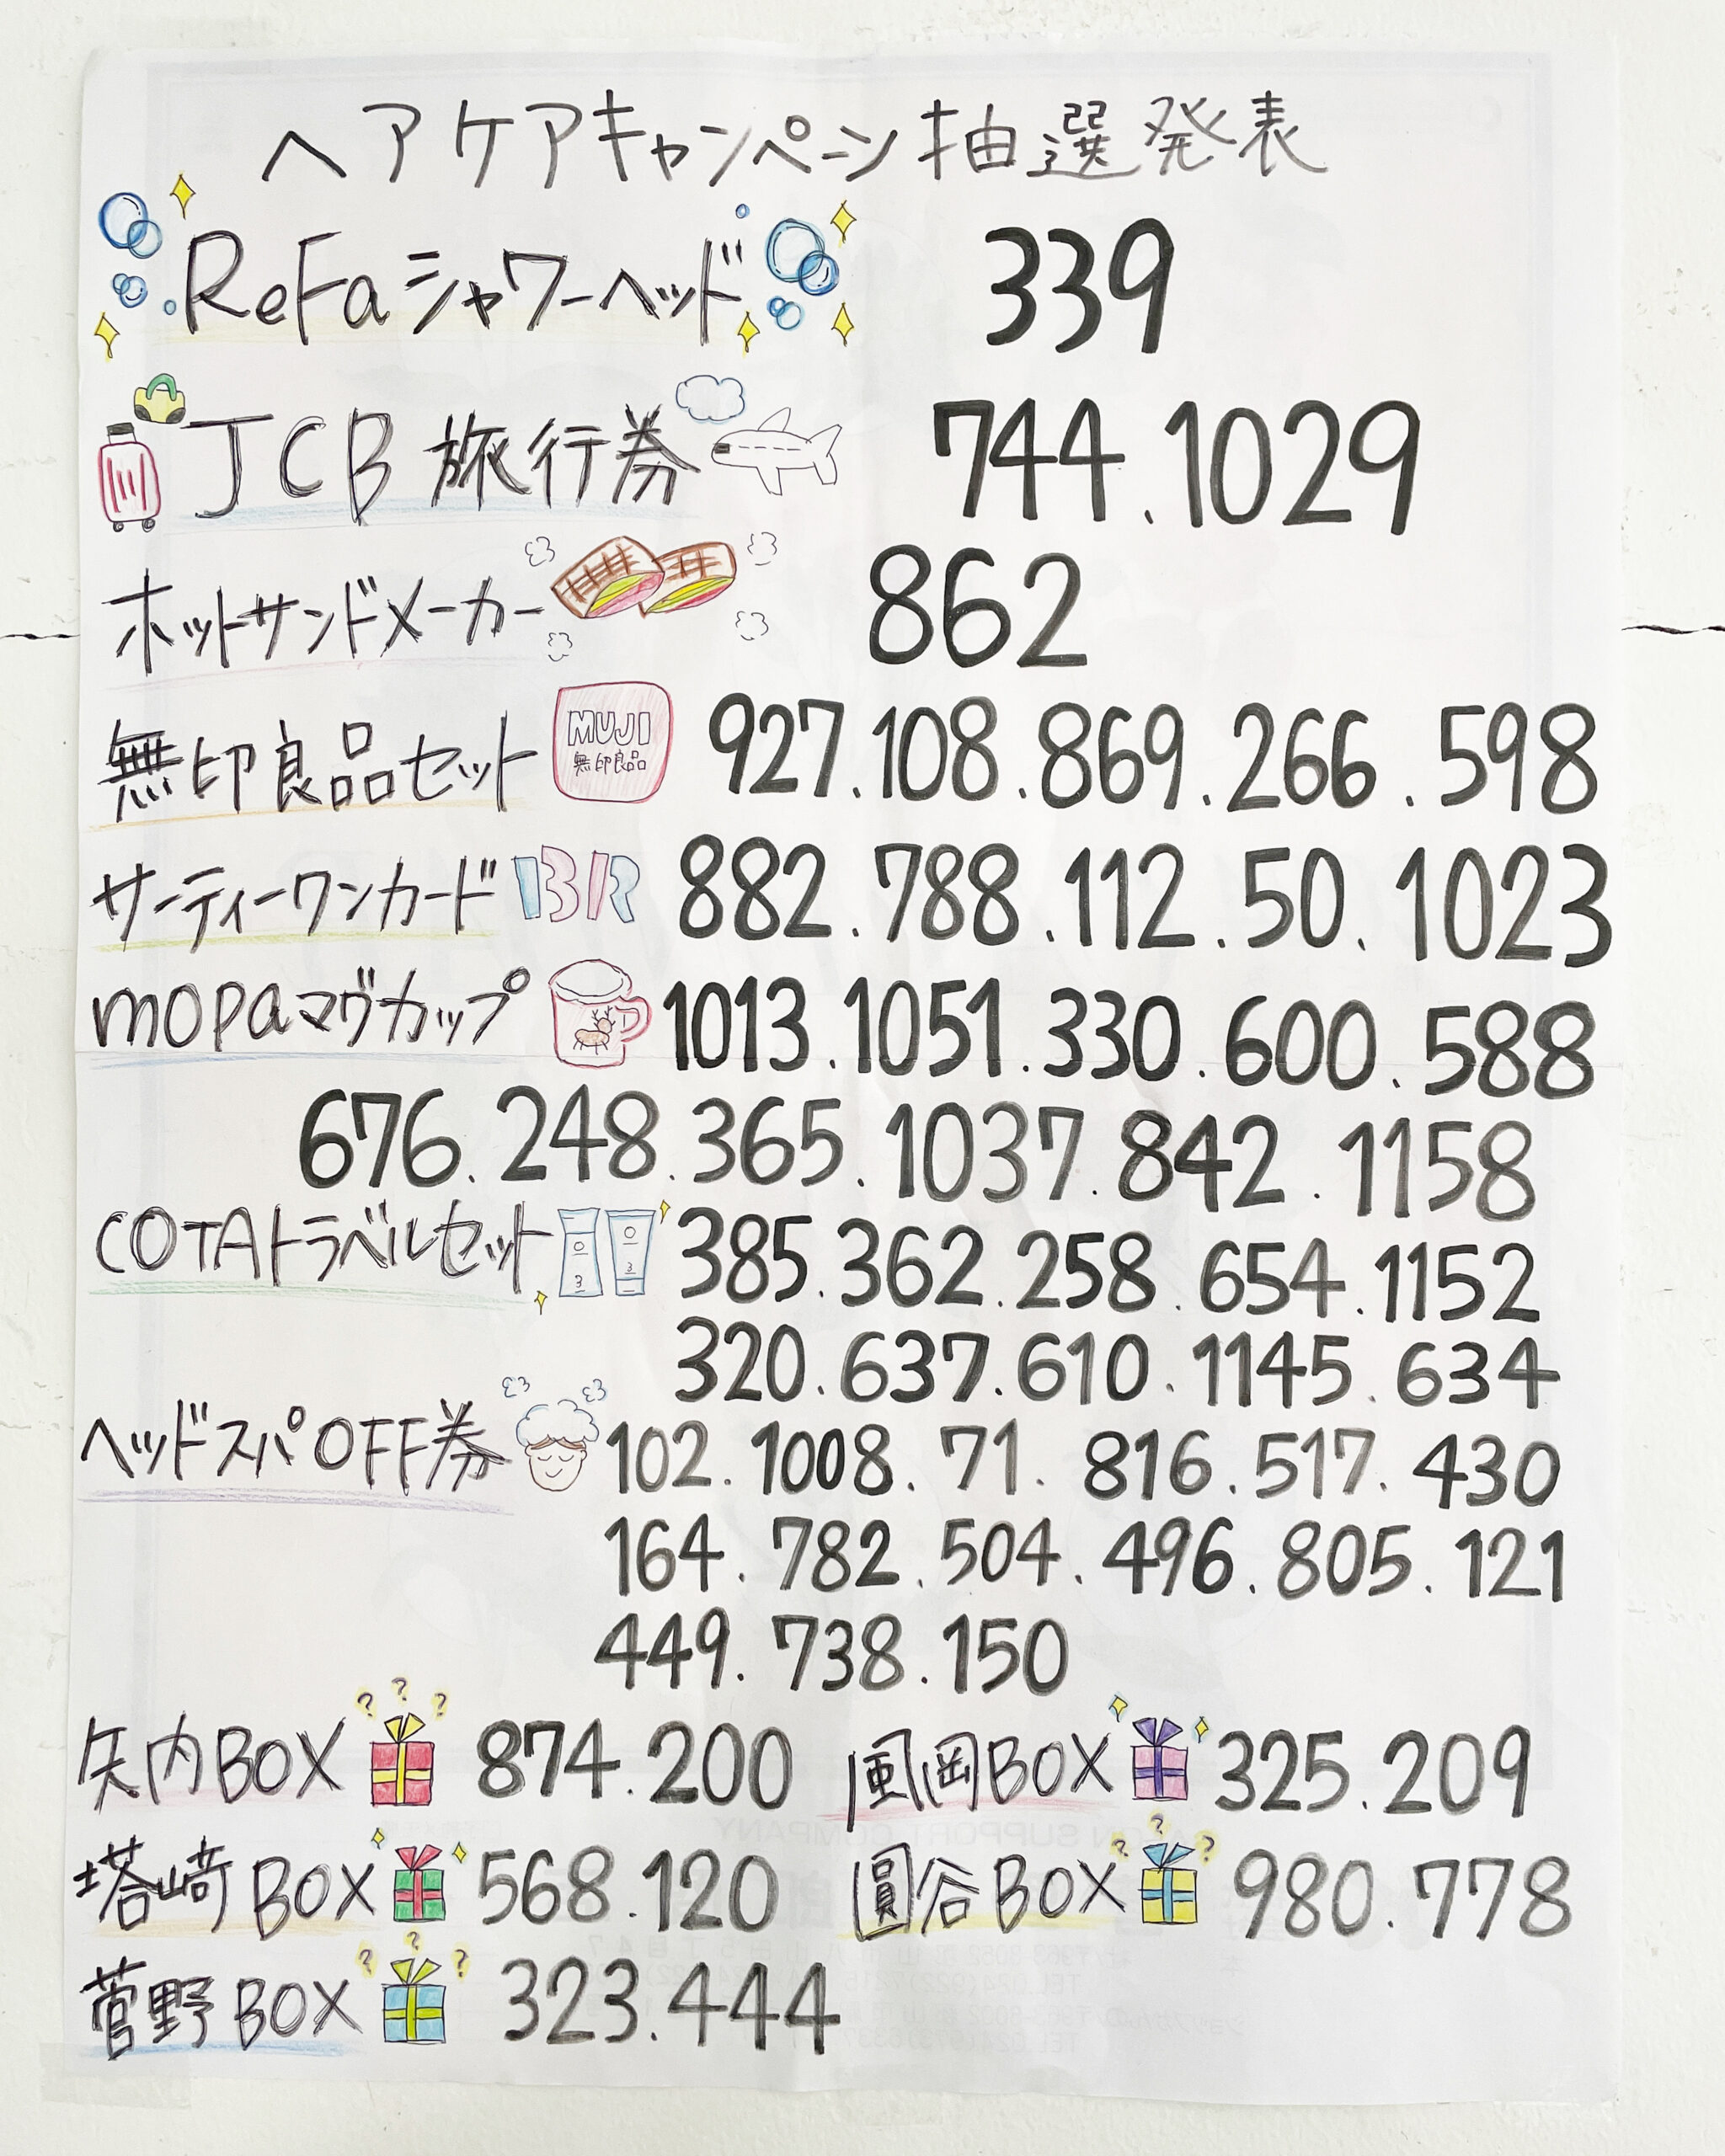 ヘアケアキャンペーン抽選発表
ReFaシャワーヘッド 339
JCB旅行券 744.1029
ホットサンドメーカー 862
無印良品セット MUJI 無印良品 927.108.869.266.598
サーティーワンカード BR 882.788.112.50.1023
mopaマグカップ 1013.1051.330.600.588
676.248.365.1037.842.1158
COTAトラベルセット 3 3 385.362.258.654.1152
320.637.610.1145.634
ヘッドスパOFF券 102.1008.71.816.517.430
164.782.504.496.805.121
449.738.150
矢内BOX ??? 874.200 風岡BOX 325.209
塔崎BOX 568.120 圓谷BOX ??? 980.778
菅野BOX ??? 323.444